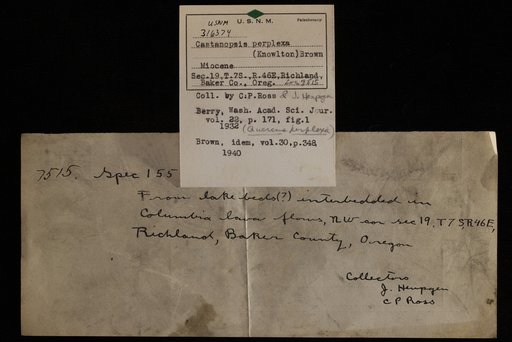 U.S.N.M. Paleobotany
USNM
316374
Castanopsis perplexa
(Knowlton)Brown
Miocene
Sec.19,T.7S.,R.46E,Richland,
Baker Co., Oreg. Loc. 7515
Coll. by C.P.Ross & J. Hempgen
Berry, Wash. Acad. Sci. Jour.
vol. 22, p. 171, fig.1
1932 (Quercus perplexa)
Brown, idem, vol.30,p.348
1940
7515. Spec 155
From lake beds(?) interbedded in
Columbia lava flows, NW cor sec 19, T7S, R46E,
Richland, Baker County, Oregon
Collectors
J. Hempgen
C P Ross